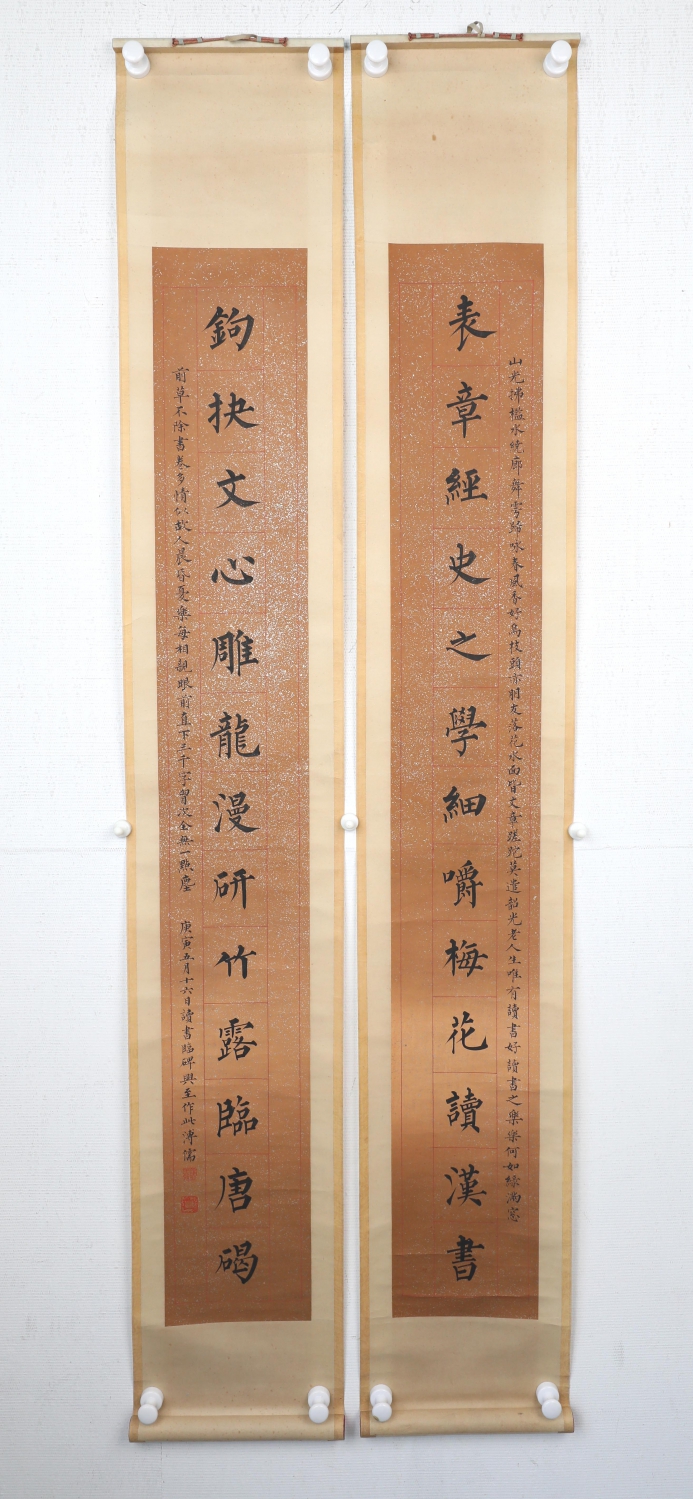 山光拂檻水繞廊舞雩歸咏春風香好鳥枝頭亦朋友落花水面皆文章蹉跎莫遣韶光老人生唯有讀書好讀書之樂樂何如綠滿窓
表章經史之學細嚼梅花讀漢書
鉤抉文心雕龍漫研竹露臨唐碣
前草不除書卷多情似故人晨昏憂樂每相親眼前直下三千字胷次全無一點塵 庚寅五月十六日讀書臨碑興至作此溥儒